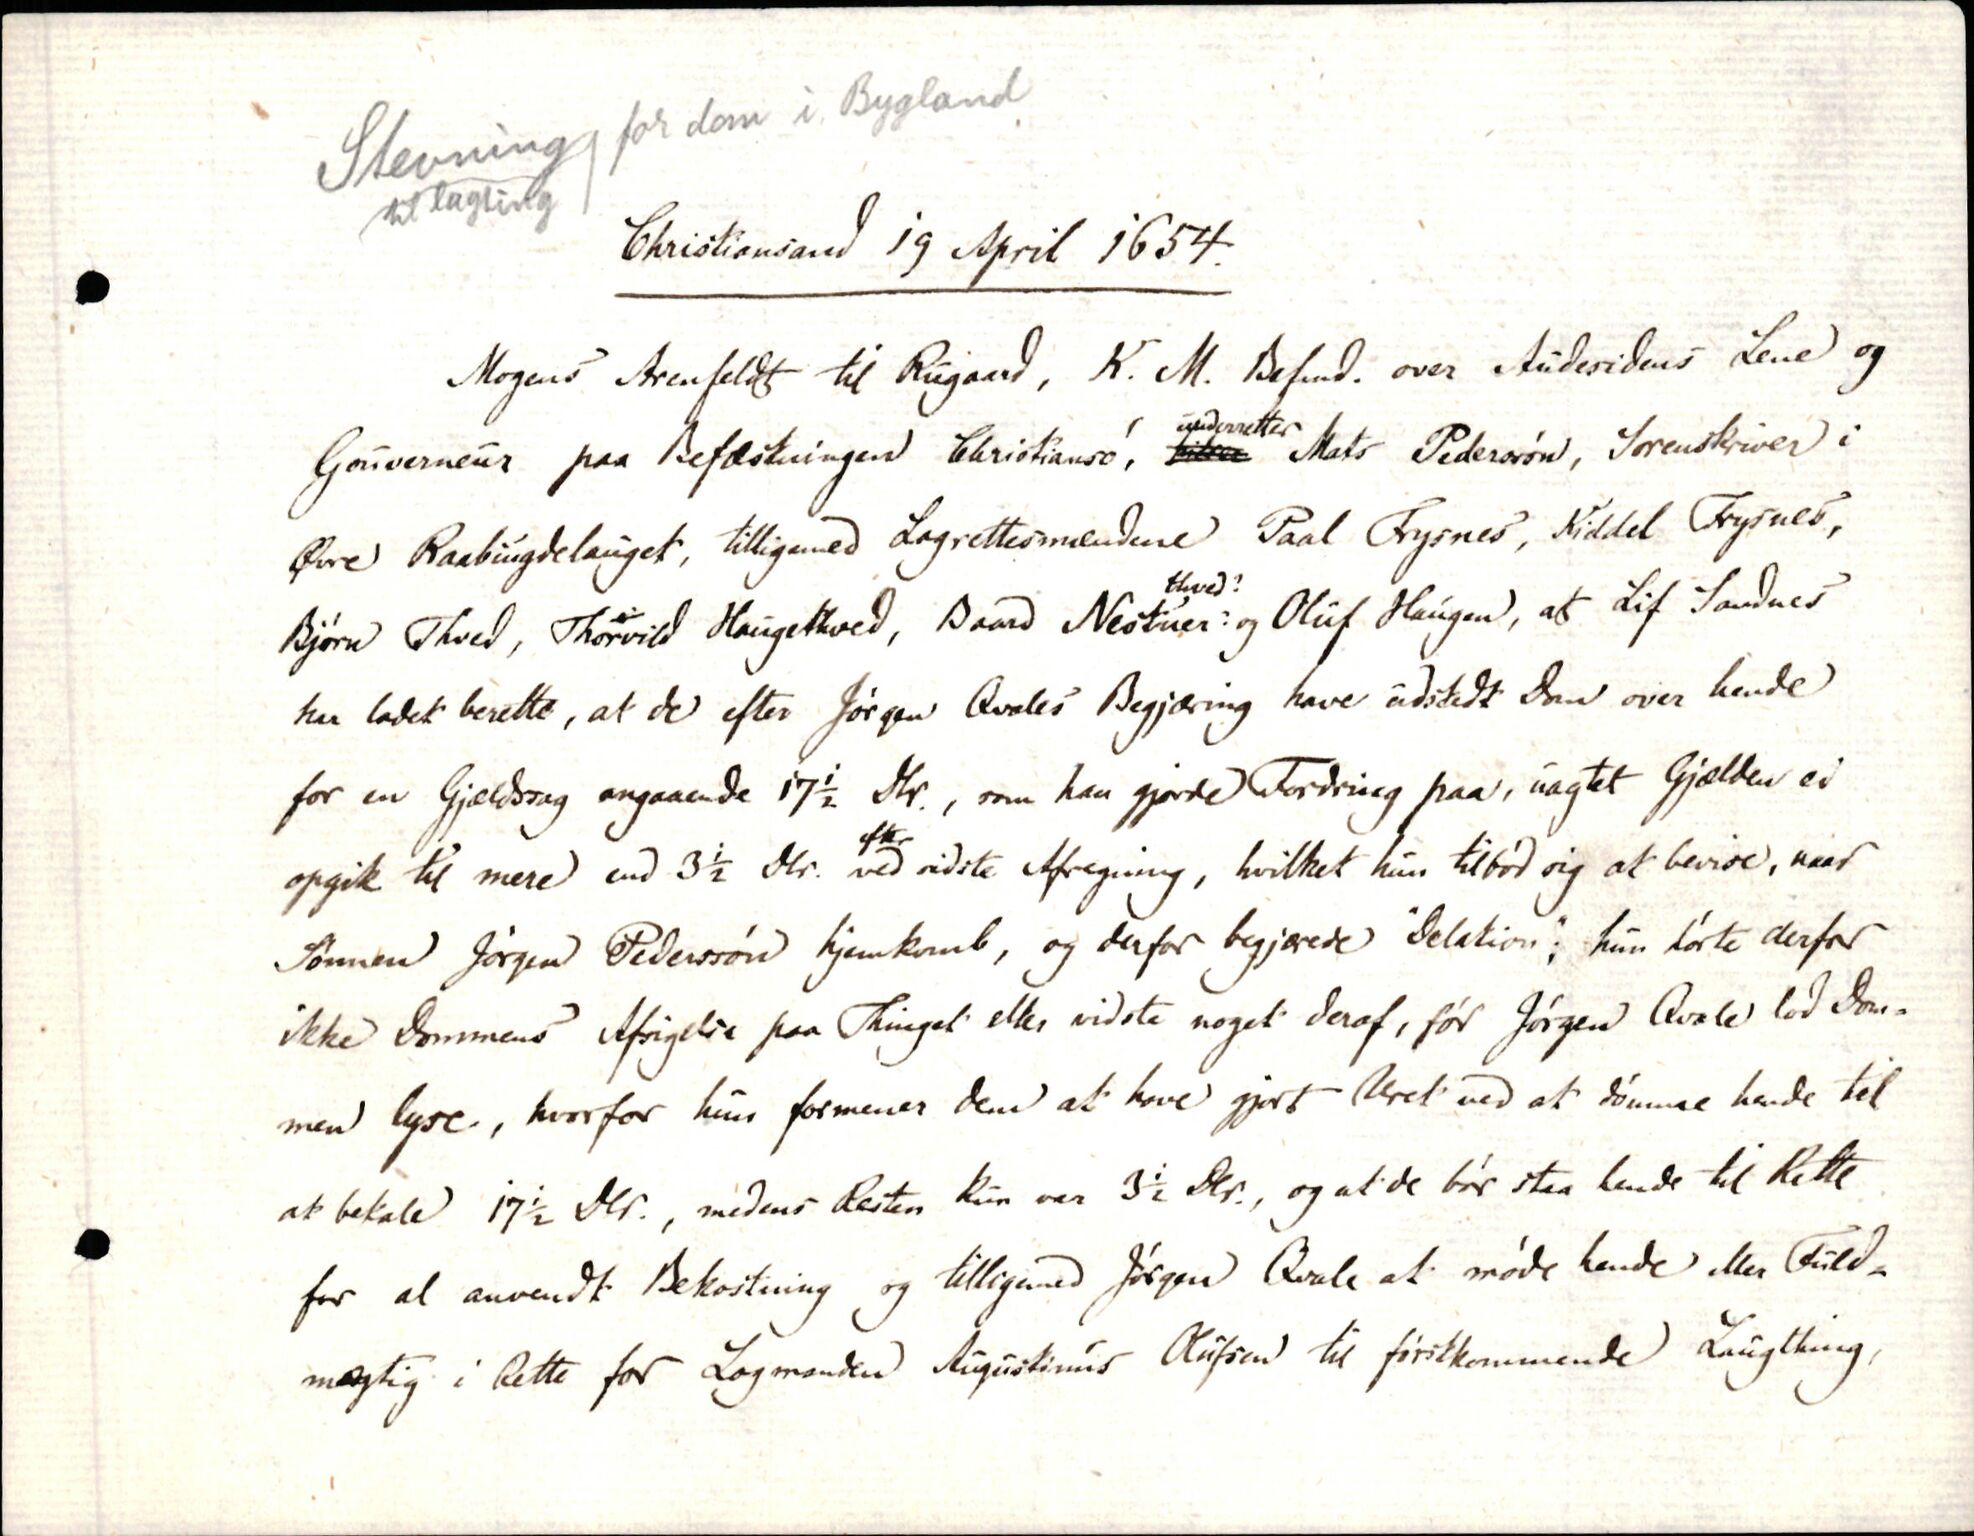 Stevning for dom i Bygland
til lagting
Christiansand 19 April 1654.
Mogens Arenfeldt til Rugaard, K. M. Befmd. over Audesidens Lene og
Gouverneur paa Befæstningen Christiansö, underretter Mats Pederssön, Sorenskriver i
Øvre Raabugdelauget, tilligemed Lagrettesmændene Paal Frysnes, Kiddel Frysnes,
Björn Thved, Thorvild Haugethved, Baard Nestuer: thved? og Oluf Haugen, at Lif Sandnes
har ladet berette, at de efter Jörgen Qvales Begjæring have udstedt Dom over hende
for en Gjældssag angaaende 17½ Dlr., som han gjorde Fordring paa, uagtet Gjælden ei
opgik til mere end 3½ Dlr. ved efter sidste Afregning, hvilket hun tilböd sig at bevise, naar
Sönnen Jörgen Pederssön hjemkomb, og derfor begjærede "Delation"; hun hörte derfor
ikke Dommens Afsigelse paa Thinget eller vidste noget deraf, för Jörgen Qvale lod Dom-
men lyse, hvorfor hun formener dem at have gjort Uret ved at dömme hende til
at betale 17½ Dlr., medens Resten kun var 3½ Dlr., og at de bör staa hende til Rette
for al anvendt Bekostning og tilligemed Jörgen Qvale at möde hende eller Fuld-
mægtig i Rette for Lagmanden Augustinus Olufsen til förstkommende Laugthing,